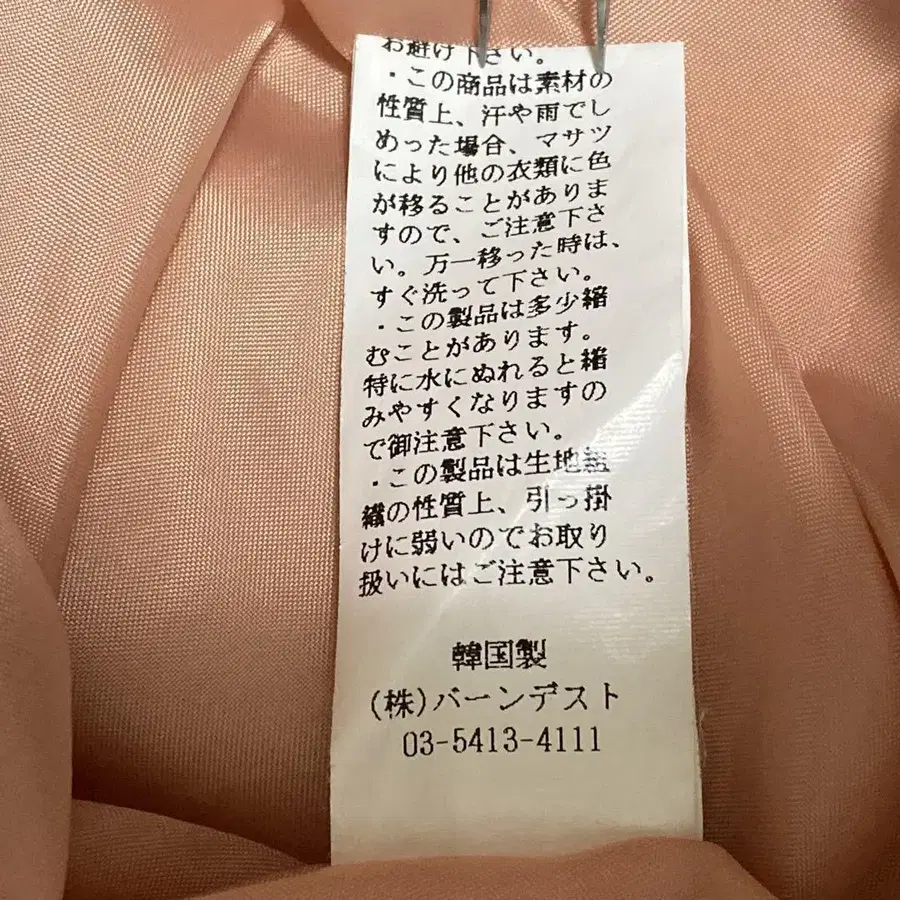 お避け下さい。
・この商品は素材の
性質上、汗や雨でし
めった場合、マサツ
により他の衣類に色
が移ることがありま
すので、ご注意下さ
い。万一移った時は、
すぐ洗って下さい。
・この製品は多少縮
むことがあります。
特に水にぬれると縮
みやすくなりますの
で御注意下さい。
・この製品は生地組
織の性質上、引っ掛
けに弱いのでお取り
扱いにはご注意下さい。
韓国製
(株)バーンデスト
03-5413-4111